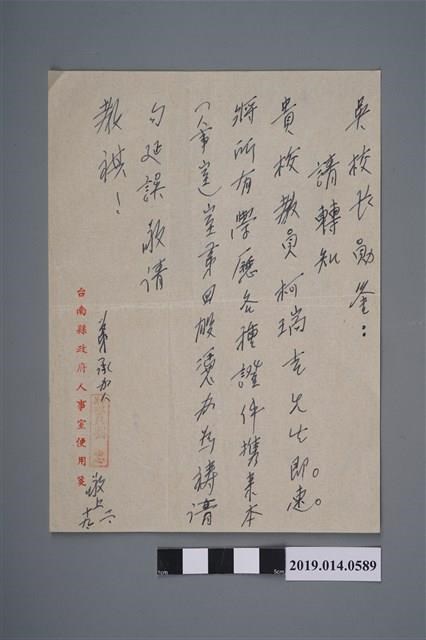 吳校長勛鑒：
請轉知
貴校教員柯瑞吉先生即速。
將所有學歷各種證件携來本
（人事室）室弟田般憑办為禱請
勿延誤敬请
教祺！
弟承办人
敬上
台南縣政府人事室便用箋
1cm
5cm
2019.014.0589